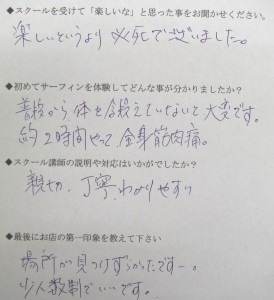 ◆スクールを受けて「楽しいな」と思った事をお聞かせください。
楽しいというより必死で思いました。
◆初めてサーフィンを体験してどんな事が分かりましたか？
普段から体を鍛えていないと大変です。
約2時間やって全身筋肉痛。
◆スクール講師の説明や対応はいかがでしたか？
親切、丁寧、わかりやすい
◆最後にお店の第一印象を教えて下さい
場所が見つけずらかったですー。
少人数制でいいです。